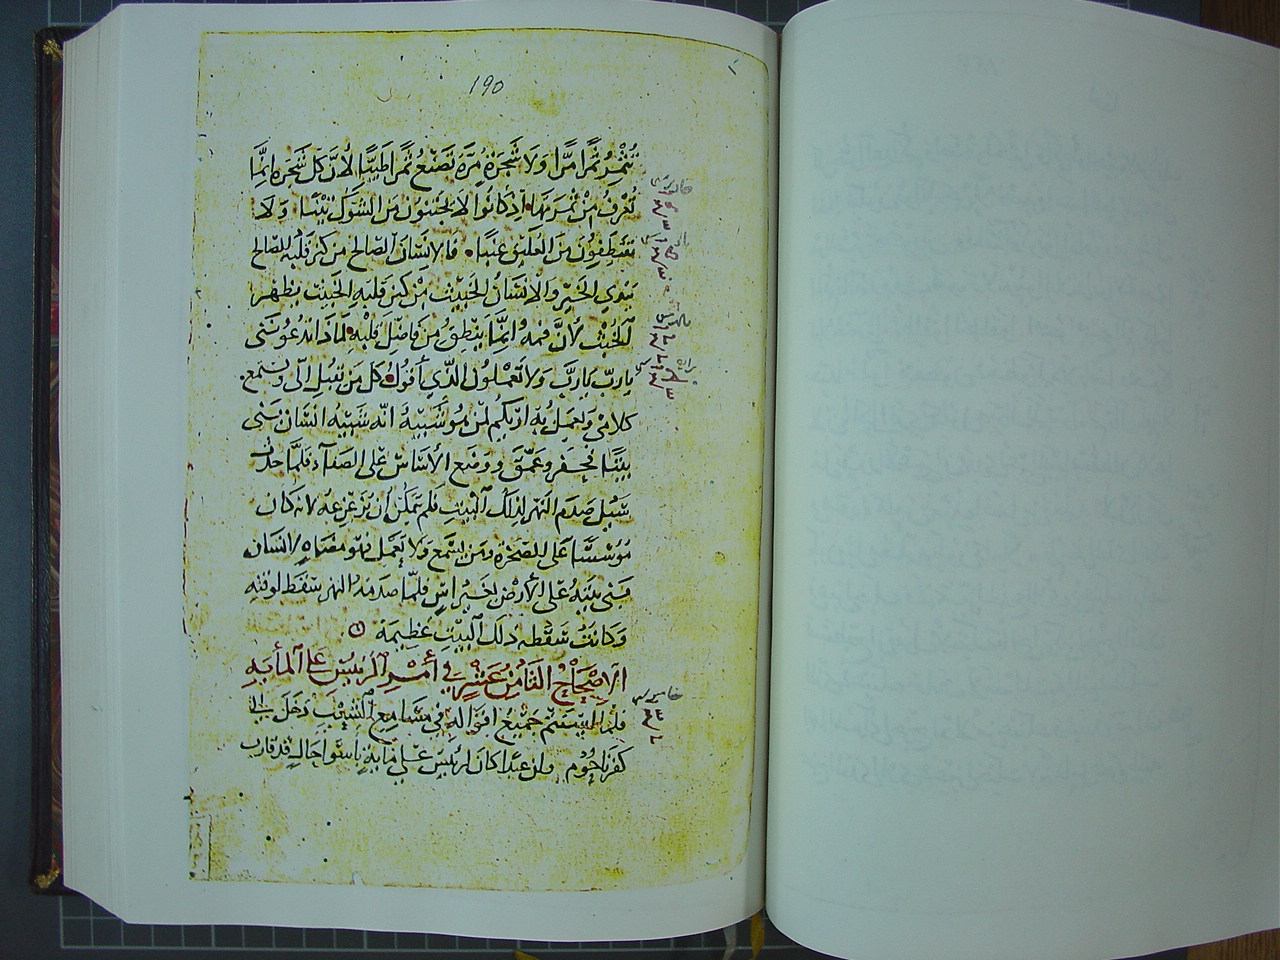 190
تُثْمِرُ ثَمَرًا مُرًّا وَلَا شَجَرَة مُرَّة تَصْنَعُ ثَمَرًا طَيِّبًا لِأَنَّ كُلّ شَجَرَه اِنَّمَا
تُعْرَفُ مِنْ ثَمَرَتِهَا اِذ كَانُوا لَا يَجْتَنُونَ مِنَ الشَّوْكِ تِيْنًا وَلَا
يَقْتَطِفُوْنَ مِنَ العُلَّيْقِ عِنَبًا فَالاِنْسَانُ الصَّالح مِن كَنْز قَلْبِهِ الصَّالح
يُبْدِي الخَيْرَ وَالْاِنْسَانُ الخَبِيْث مِنْ كَنْزِ قَلْبِهِ الخَبِيْث يُظْهِرُ
اَلخُبْث لِأَنَّ فَمَهُ اِنَّمَا يَنْطِقُ مِنْ فَاضِلِ قَلْبِهِ لِمَاذَا تَدْعُوْنَنِي
يَا رَبّ يَا رَبّ وَلَا تَعْمَلُونَ الَّذِي أَقُولُ كُل مَن يُقْبِل اِلَيَّ وَيَسْمَع
كَلَامِي وَيَعْمَلُ بِهِ اُرِيْكُم لِمَن هُوَ شَبِيْهٌ انّه شَبِيْه انْسَان بَنَى
بَيْتًا فَحَفَر وَعَمَّقَ وَوَضَعَ الأَسَاسَ عَلَى الصَفَاة فَلَمَّا حَدَثَ
سَيْل صَدَمَ النَهر لِذلِكَ اَلْبَيْتِ فَلَم يَتَمَكَّن أَنْ يُزَعْزِعَهُ لانه كَانَ
مُؤَسَّسًا عَلَى الصَّخْرَة وَمَن يَسْمَع وَلَا يَعْمَل فَهُوَ مُضَاهٍ لِانْسَان
بَنَى بَيْتَهُ عَلَى الأَرْضِ بِغَيْر اسَاسٍ فَلَمَّا صَدَمَهُ النهر سَقَطَ لِوَقْتِهِ
وَكَانَتْ سَقْطَه ذلِكَ اَلْبَيْتِ عَظِيْمَة
اَلاِصْحَاحُ الثَّامِنُ عَشَر فِي أَمْرِ الرَّئِيْسِ عَلَى اَلمِأَيَةِ
فَلَمَّا اسْتَتَمَّ جَمِيْعُ اقوَالِهِ فِي مَسَامِعِ الشَّعْبِ دَخَلَ الى
كَفَرنَاحُوْم وان عَبْدًا كَانَ لِرَئِيْس عَلَى مَايَةٍ بِاسْوَا حَالٍ قَد قَارَب